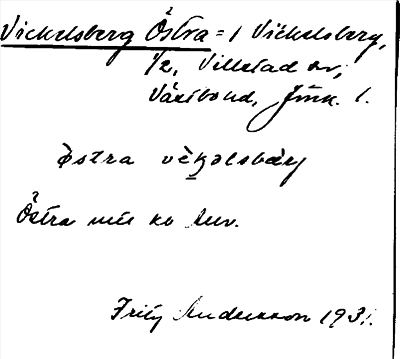 Vickelsberg Östra = 1 Vickelsberg,
1/2, Villstad sn,
Västbo hd, Jönk. l.
östra vèkəlsbærj
Östra
Fritz Andersson 1931.